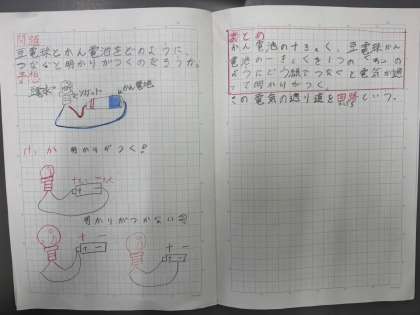 問題
豆電球とかん電池をどのように、
つなぐと明かりがつくのだろうか。
予想
導線
ソケット
かん電池
けっか 明かりがつく
+ −
明かりがつかない
+ −
+ −
+ −
+ −
まとめ
かん電池の+きょく、豆電球かん
電池の−きょくを1つの「わ」の
ようにどう線でつなぐと電気が通
って明かりがつく。
この電気の通り道を回路という。